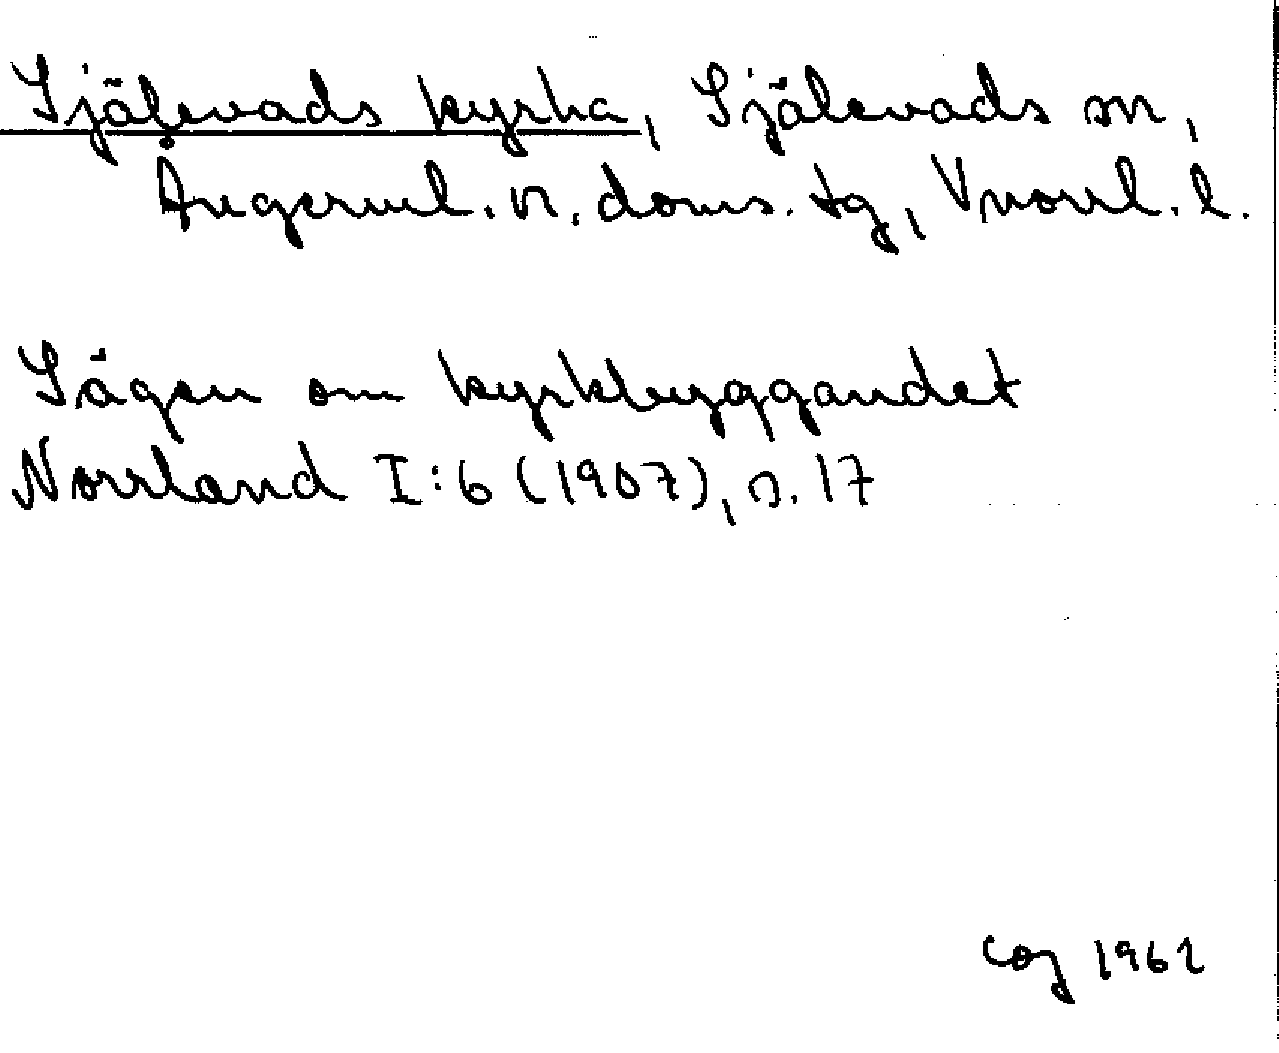 Själevads kyrka, Själevads sn,
Ångerml. n. doms. tg, Vnorrl. l.
Sägen om kyrkbyggandet
Norrland I:6 (1907), s. 17
1962